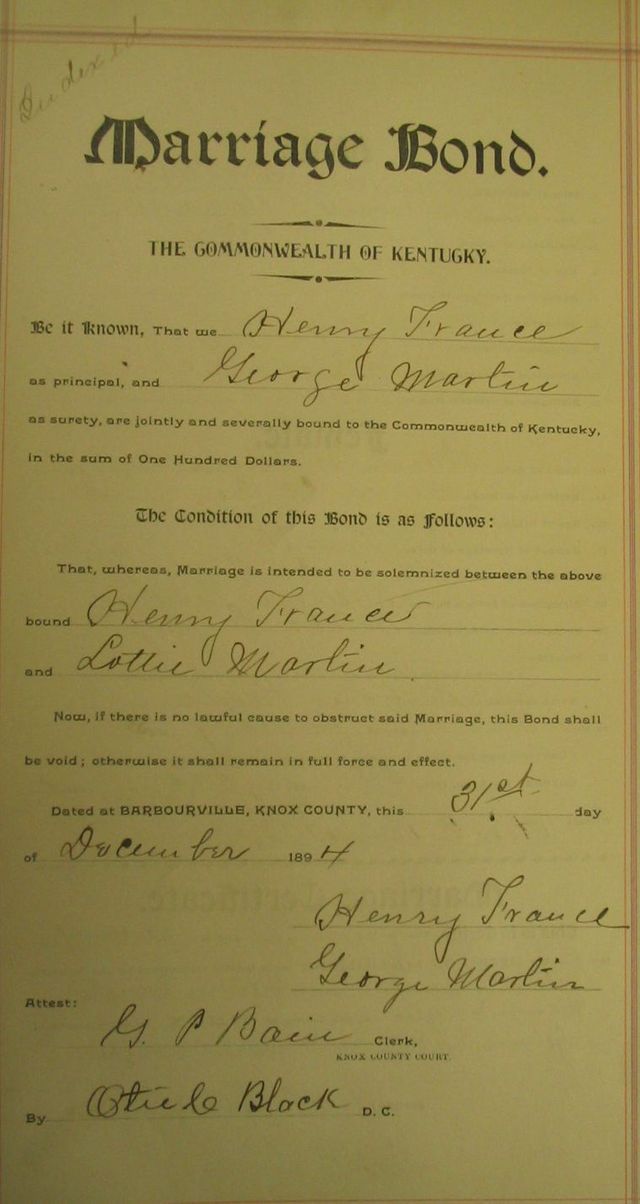 Indexed
Marriage Bond.
THE COMMONWEALTH OF KENTUCKY.
Be it Known, That we Henry France
as principal, and George Martin
as surety, are jointly and severally bound to the Commonwealth of Kentucky,
in the sum of One Hundred Dollars.
The Condition of this Bond is as Follows:
That, whereas, Marriage is intended to be solemnized between the above
bound Henry France
and Lottie Martin
Now, if there is no lawful cause to obstruct said Marriage, this Bond shall
be void; otherwise it shall remain in full force and effect.
Dated at BARBOURVILLE, KNOX COUNTY, this 31st day
of December 1894
Henry France
George Martin
Attest:
G. P Bain Clerk,
KNOX COUNTY COURT.
By Black D. C.